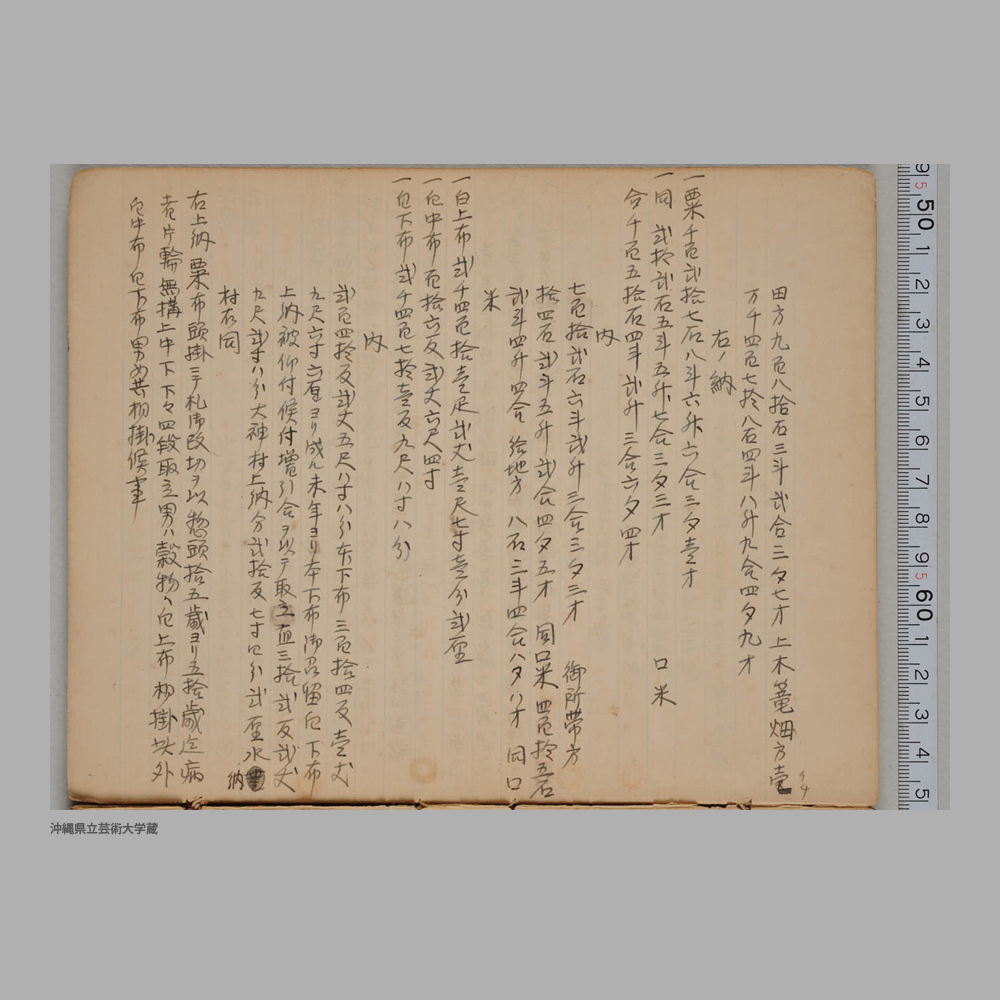 田方九百八拾石三斗弐合二夕七才 上木篭畑方壱
万千四百七拾八石四斗八升九合四夕九才
右ノ納
一粟千百弐拾七石八斗六升六合三夕壱才
一同 弐拾弐石五斗五升七合三夕三才 口米
合千百五拾石四斗弐升三合六夕四才
内
七百拾弐石六斗弐升三合三夕三才 御所帯方
拾四石弐斗五升弐合四夕五才 同口米 四百拾五石
弐斗四升四合 給地方 八石三斗四合八夕八才 同口
米
一白上布弐千四百拾壱疋弐丈壱尺七寸壱分弐厘
一白中布百拾六反弐丈六尺四寸
一白下布弐千四百七拾壱反九尺八寸八分
内
弐百四拾反弐丈五尺八寸八分 下布 三百拾四反壱丈
九尺六寸六厘ヨリ成ル未年ヨリ本下布御召留白下布
上納被仰付候付増引合ヲ以テ取立 三拾弐反弐丈
九尺弐寸八分大神村上納分弐拾反七寸 分弐厘水
納
村右同
右上納粟布頭掛ニテ札御改切ヲ以惣頭拾五歳ヨリ五拾歳迄病
者片輪無構上中下下々四段取立男ハ穀物 白上布 掛 外
白中布白下布男女共 掛候事